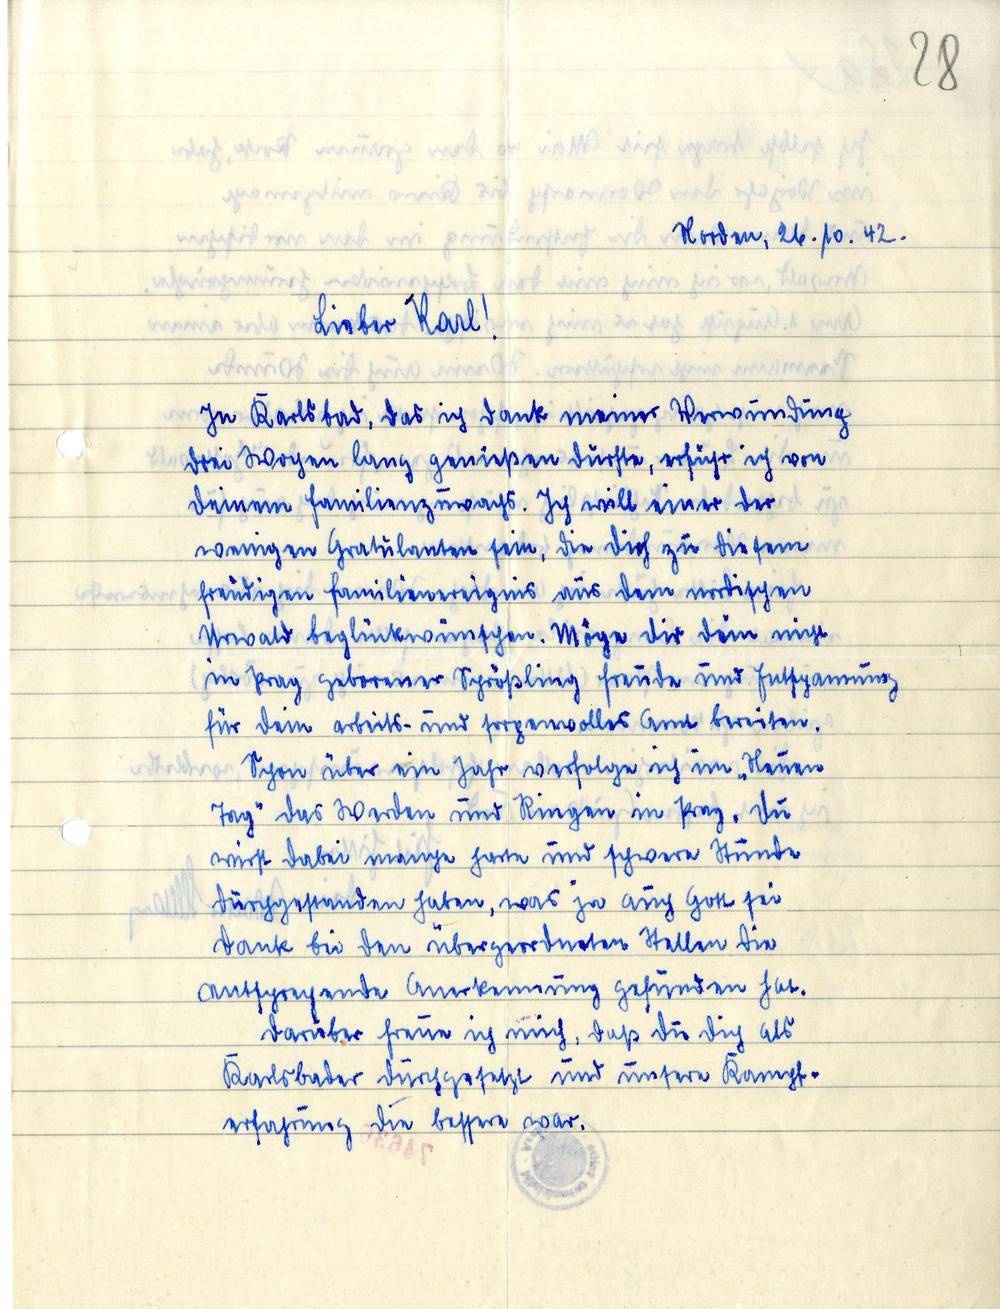 28
Norden, 26.10.42.
Lieber Karl!
In Karlsbad, das ich dank meiner Verwundung
drei Wochen lang genießen durfte, erfuhr ich von
deinem Familienzuwachs. Ich will einer der
wenigen Gratulanten sein, die dich zu diesem
freudigen Familienereignis aus dem nordischen
Urwald beglückwünschen. Möge dir dein nicht
in Prag geborener Sprößling Freude und Entspannung
für dein arbeits- und sorgenvolles Amt bereiten.
Schon über ein Jahr verfolge ich im "Neuen
Tag" das Werden und Ringen in Prag. Du
wirst dabei manche harte und schwere Stunde
durchgestanden haben, was ja auch Gott sei
dank bei den übergeordneten Stellen die
entsprechende Anerkennung gefunden hat.
Darüber freue ich mich, daß du dich als
Karlsbader durchgesetzt und unsere Kampf-
erfahrung die bessere war.